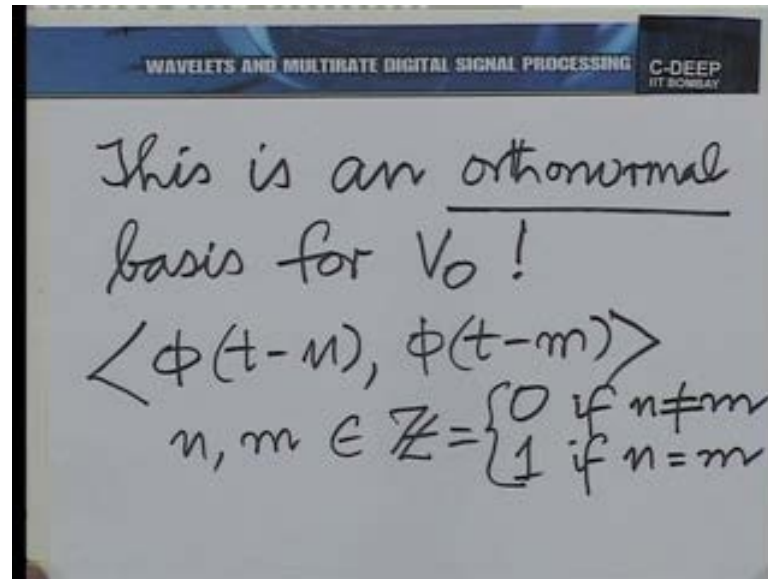 WAVELETS AND MULTIRATE DIGITAL SIGNAL PROCESSING
C-DEEP
IIT BOMBAY
This is an orthonormal
basis for V₀ !
<ϕ(t-n), ϕ(t-m)>
n, m ∈ ℤ = {0 if n≠m
1 if n=m